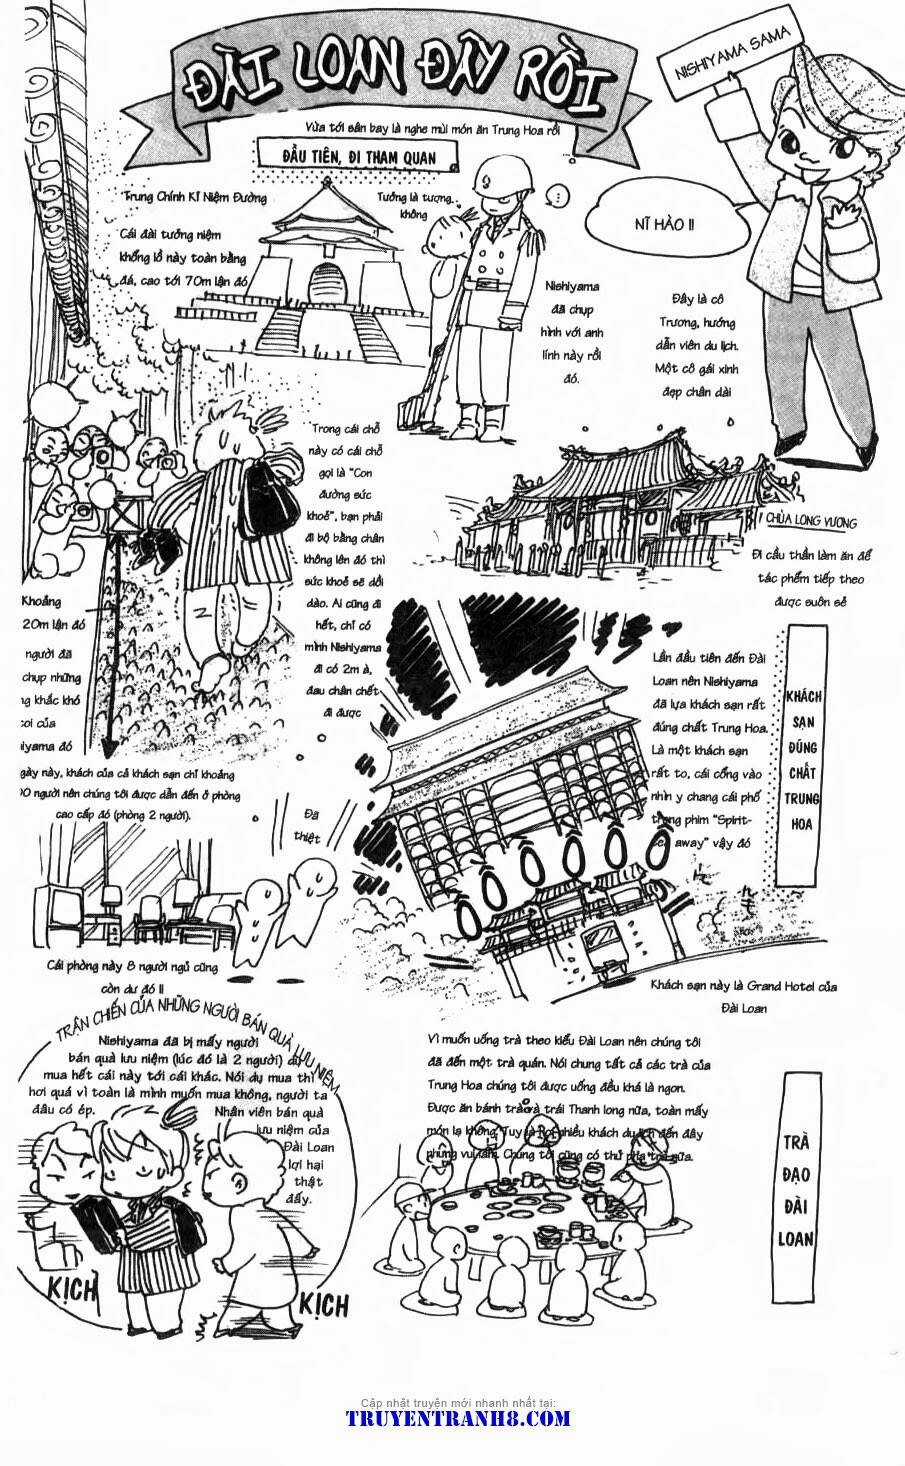 ĐÀI LOAN ĐÂY RỒI
NISHIYAMA SAMA
Vừa tới sân bay là nghe mùi món ăn Trung Hoa rồi
ĐẦU TIÊN, ĐI THAM QUAN
NĨ HẢO !!
Trung Chính Kỉ Niệm Đường
Tưởng là tượng,
không
...
Cái đài tưởng niệm
khổng lồ này toàn bằng
đá, cao tới 70m lận đó
Nishiyama
đã chụp
hình với anh
lính này rồi
đó.
Đây là cô
Trương, hướng
dẫn viên du lịch.
Một cô gái xinh
đẹp chân dài
Trong cái chỗ
này có cái chỗ
gọi là "Con
đường sức
khoẻ", bạn phải
đi bộ bằng chân
không lên đó thì
sức khoẻ sẽ dồi
dào. Ai cũng đi
hết, chỉ có
mình Nishiyama
đi có 2m à,
đau chân chết
đi được
CHÙA LONG VƯƠNG
Đi cầu thần làm ăn để
tác phẩm tiếp theo
được suôn sẻ
Khoảng
20m lận đó
người đã
chụp những
khắc khó
coi của
iyama đó
gày này, khách của cả khách sạn chỉ khoảng
0 người nên chúng tôi được dẫn đến ở phòng
cao cấp đó (phòng 2 người).
Đã
thiệt
Cái phòng này 8 người ngủ cũng
còn dư đó !!
Lần đầu tiên đến Đài
Loan nên Nishiyama
đã lựa khách sạn rất
đúng chất Trung Hoa.
Là một khách sạn
rất to, cái cổng vào
nhìn y chang cái phố
trong phim "Spirit-
ed away" vậy đó
KHÁCH
SẠN
ĐÚNG
CHẤT
TRUNG
HOA
Khách sạn này là Grand Hotel của
Đài Loan
TRẬN CHIẾN CỦA NHỮNG NGƯỜI BÁN QUÀ LƯU NIỆM
Nishiyama đã bị mấy người
bán quà lưu niệm (lúc đó là 2 người) dụ
mua hết cái này tới cái khác. Nói dụ mua thì
hơi quá vì toàn là mình muốn mua không, người ta
đâu có ép.
Nhân viên bán quà
lưu niệm của
Đài Loan
lợi hại
thật
đấy.
KỊCH
KỊCH
Vì muốn uống trà theo kiểu Đài Loan nên chúng tôi
đã đến một trà quán. Nói chung tất cả các trà của
Trung Hoa chúng tôi được uống đều khá là ngon.
Được ăn bánh trà và trái Thanh long nữa, toàn mấy
món lạ không. Tuy là hơi nhiều khách du lịch đến đây
nhưng vui lắm. Chúng tôi cũng có thử pha trà nữa.
TRÀ
ĐẠO
ĐÀI
LOAN
Cập nhật truyện mới nhanh nhất tại:
TRUYENTRANH8.COM